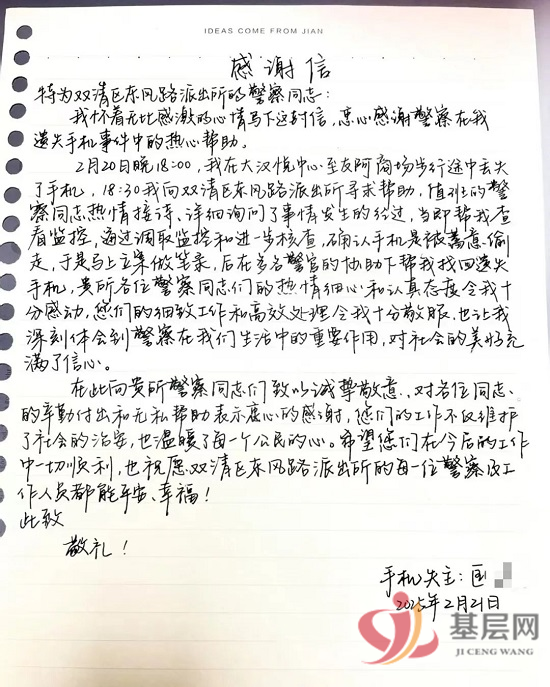 IDEAS COME FROM JIAN
感谢信
特为双清区东风路派出所的警察同志：
我怀着无比感激的心情写下这封信，衷心感谢警察在我
遗失手机事件中的热心帮助。
2月20日晚18:00，我在大汉悦中心至友阿商场步行途中丢失
了手机，18:30我向双清区东风路派出所寻求帮助，值班的警
察同志热情接待、详细询问了事情发生的经过，当即帮我查
看监控，通过调取监控和进一步核查，确认手机是被蓄意偷
走，于是马上立案做笔录，后在多名警官的协助下帮我找回遗失
手机，贵所各位警察同志们的热情细心和认真态度令我十
分感动，您们的细致工作和高效处理令我十分敬服，也让我
深刻体会到警察在我们生活中的重要作用，对社会的美好充
满了信心。
在此向贵所警察同志们致以诚挚敬意，对各位同志
的辛勤付出和无私帮助表示衷心的感谢，您们的工作不仅维护
了社会的治安，也温暖了每一个公民的心。希望您们在今后的工作
中一切顺利，也祝愿双清区东风路派出所的每一位警察及工
作人员都能平安、幸福！
此致
敬礼！
手机失主：匡
2025年2月21日
基层网
JI CENG WANG